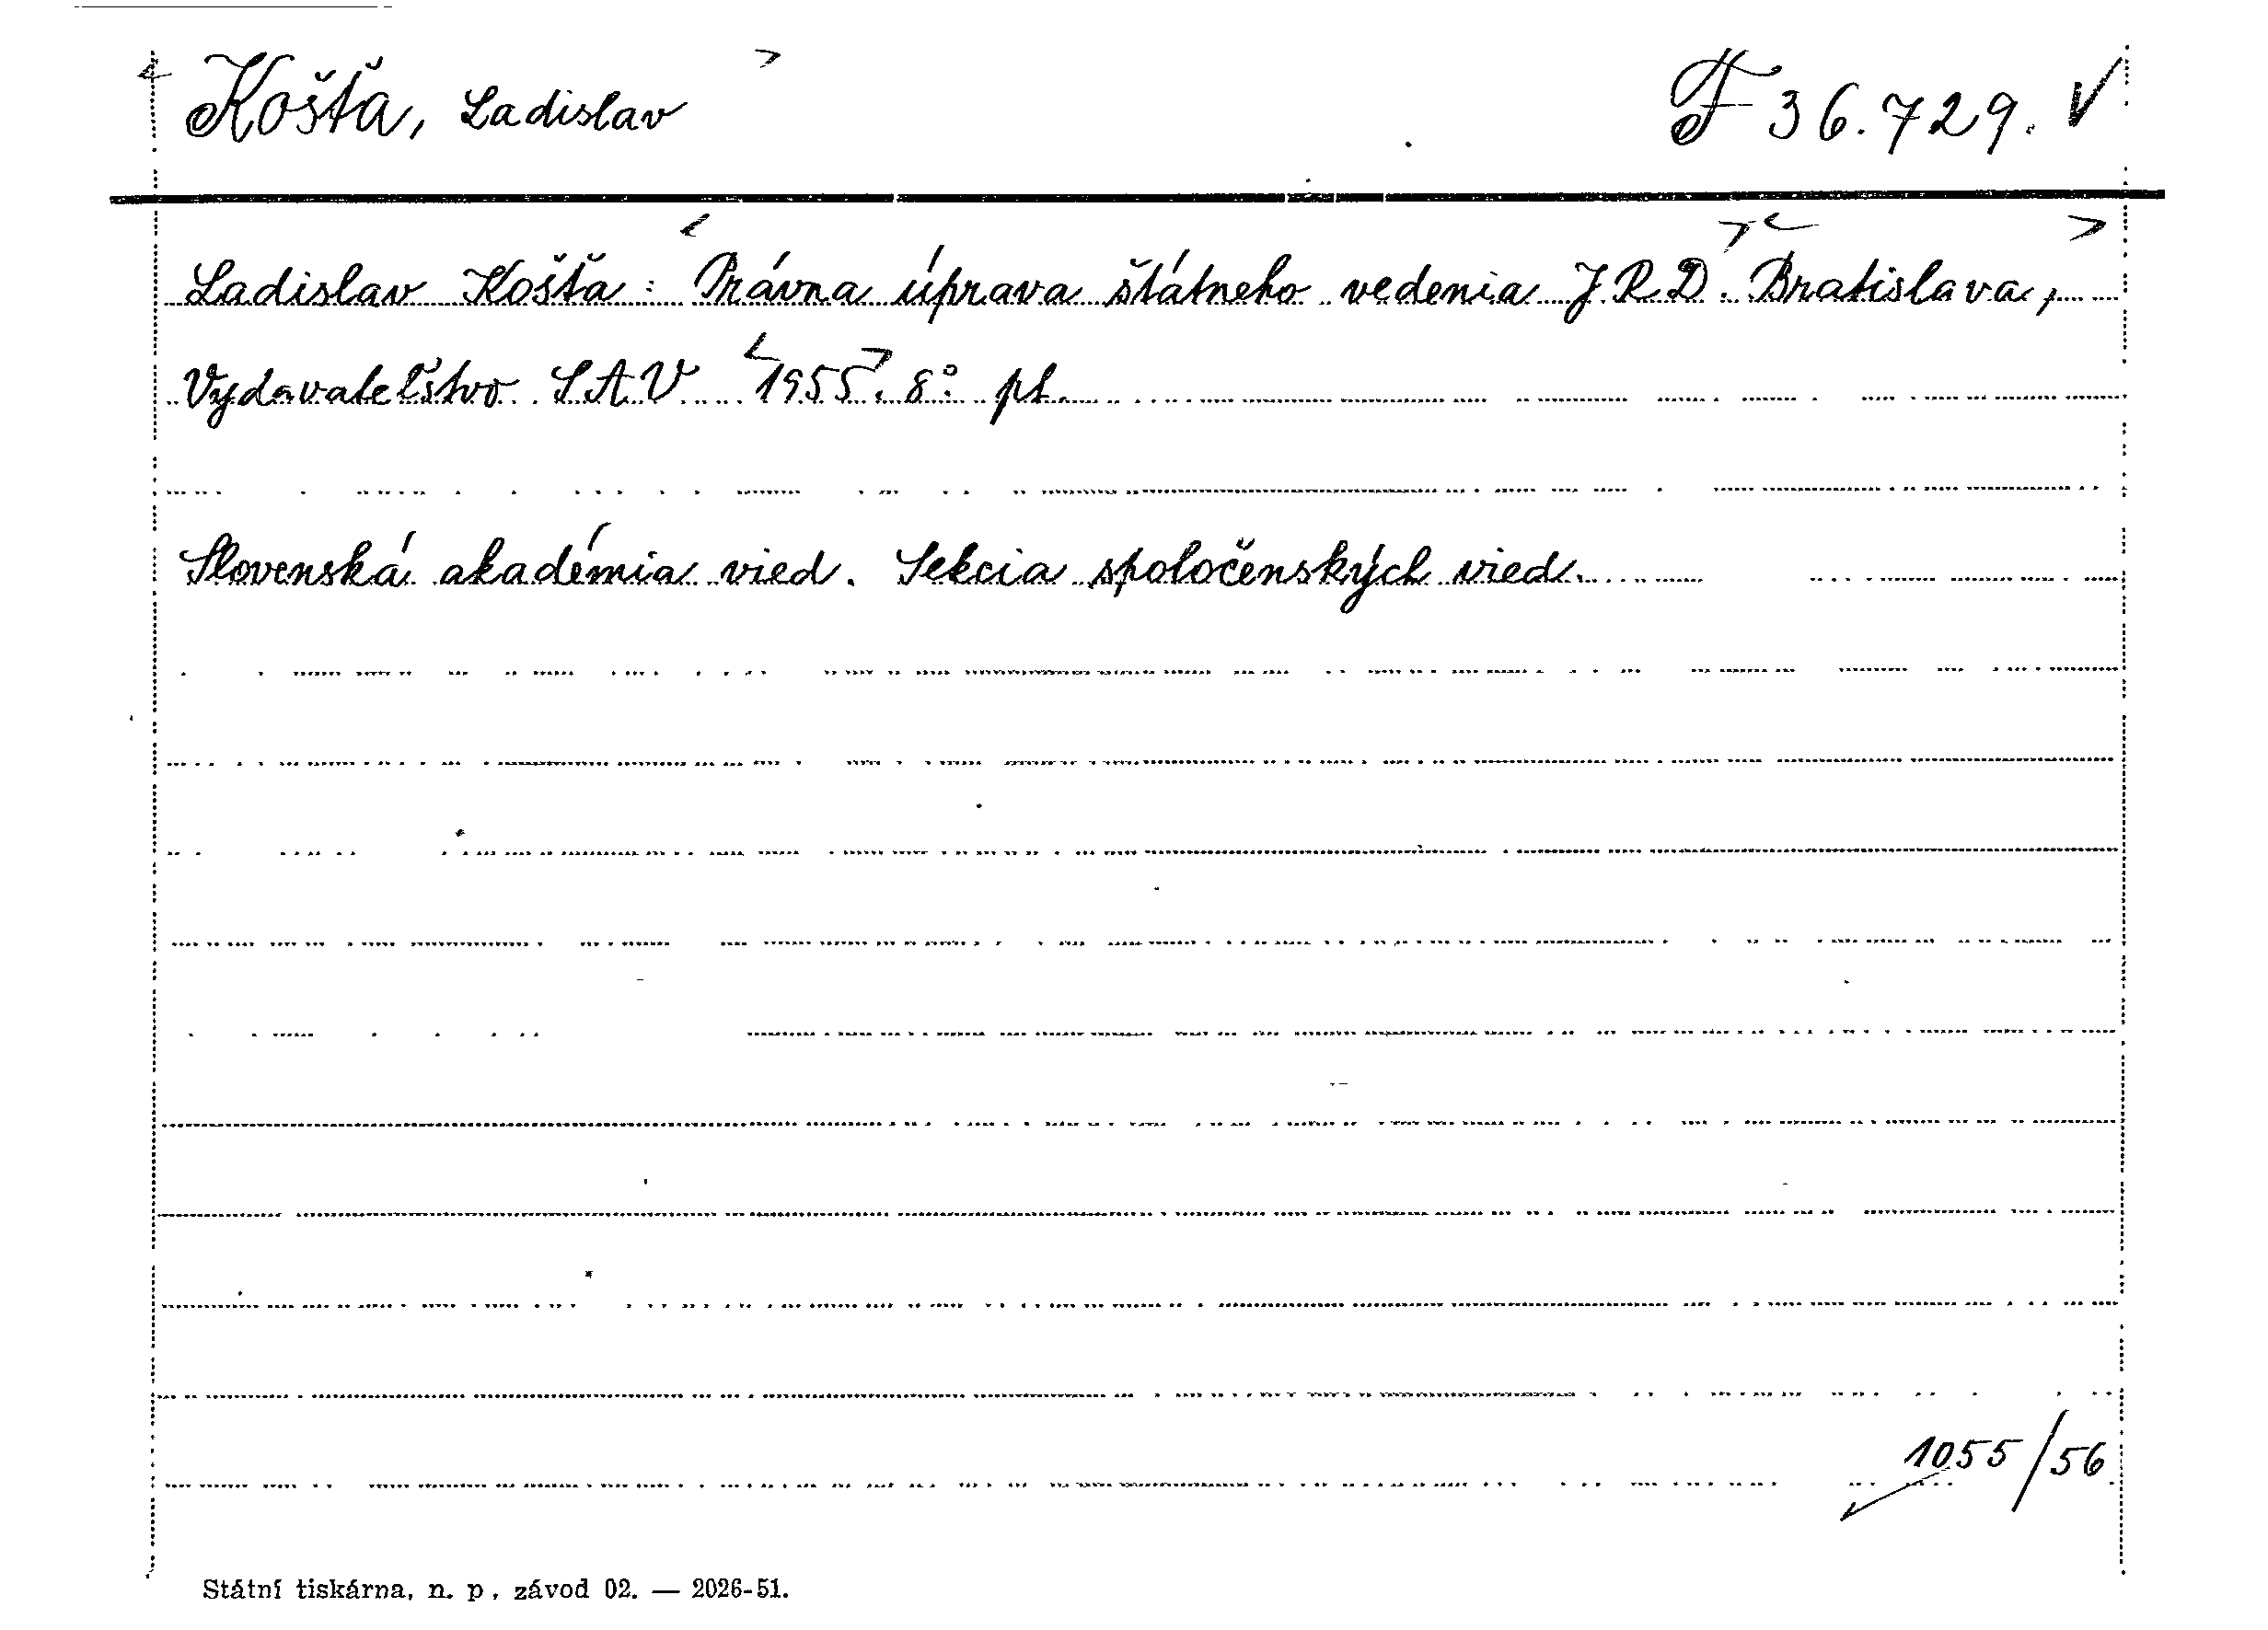 Košťa, Ladislav F 36.729. V
Ladislav Košťa: Právna úprava štátneho vedenia J.R.D. Bratislava,
Vydavateľstvo SAV 1955. 8° pl.
Slovenská akadémia vied. Sekcia spoločenských vied.
1055/56
Státní tiskárna, n. p., závod 02. — 2026-51.